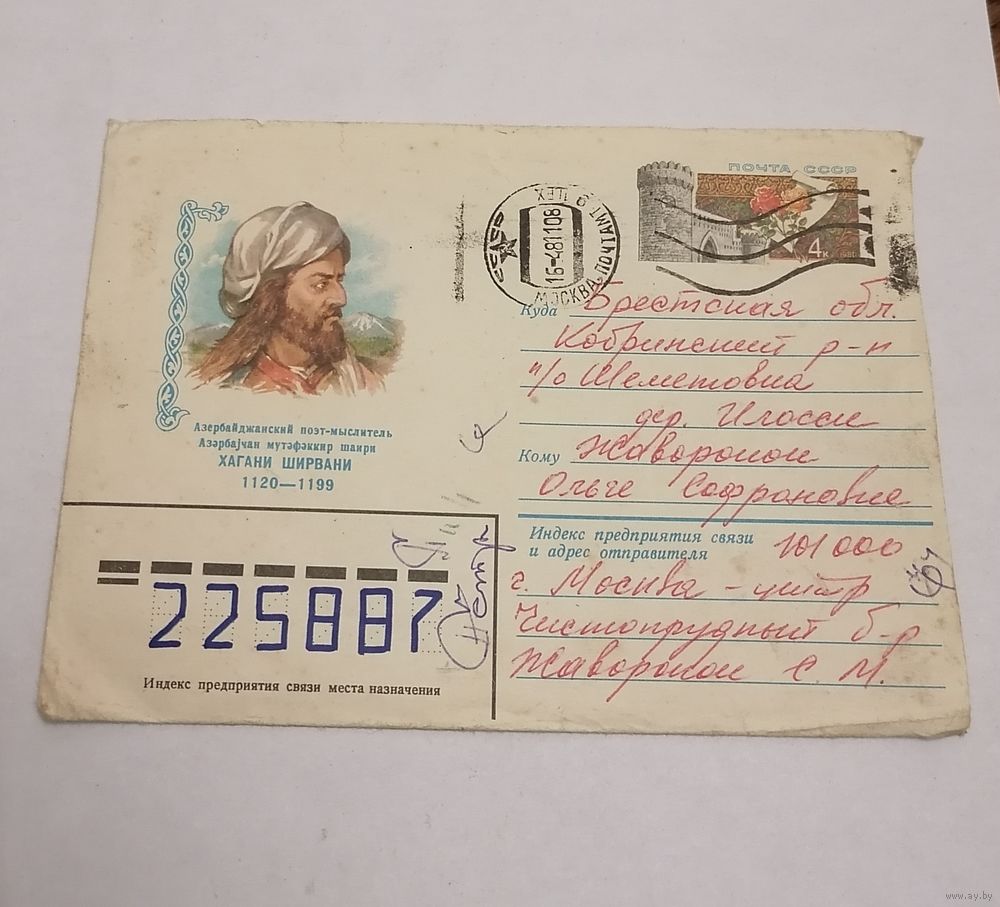 ПОЧТА СССР
4к
МОСКВА, ПОЧТАМТ
16-481108
Куда Брестская обл.
Кобринский р-н
п/о Шеметовка
дер. Илоски
Кому Жаворонок
Ольге Софроновне
Азербайджанский поэт-мыслитель
Азәрбајҹан мүтәфәккир шаири
ХАГАНИ ШИРВАНИ
1120—1199
Индекс предприятия связи
и адрес отправителя 101000
г. Москва - центр
Чистопрудный б-р
Жаворонок С. М.
225887
Индекс предприятия связи места назначения
www.ay.by